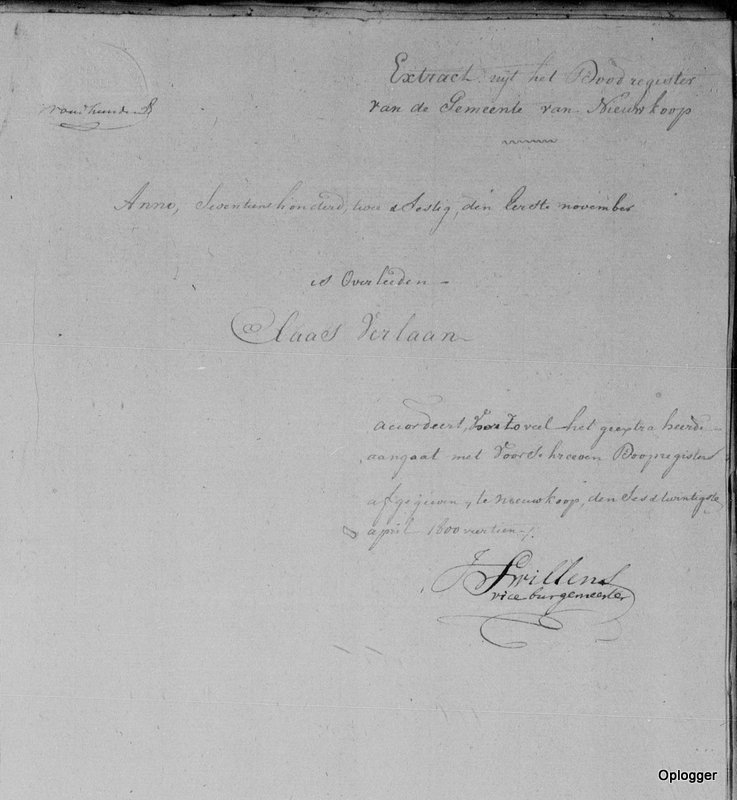 Extract uijt het Doodregister
van de Gemeente van Nieuwkoop
Anno, Seventienhonderd, twee & Sestig, den Eerste november
is Overleeden
Claas Verlaan
accordeert, Voor Zo veel het geextraheerde
aangaat met VoorSchreeven Doopregisters
afgegeeven, te nieuwkoop, den Sesstwintigste
april 1800 viertien
vice burgemeester
Oplogger